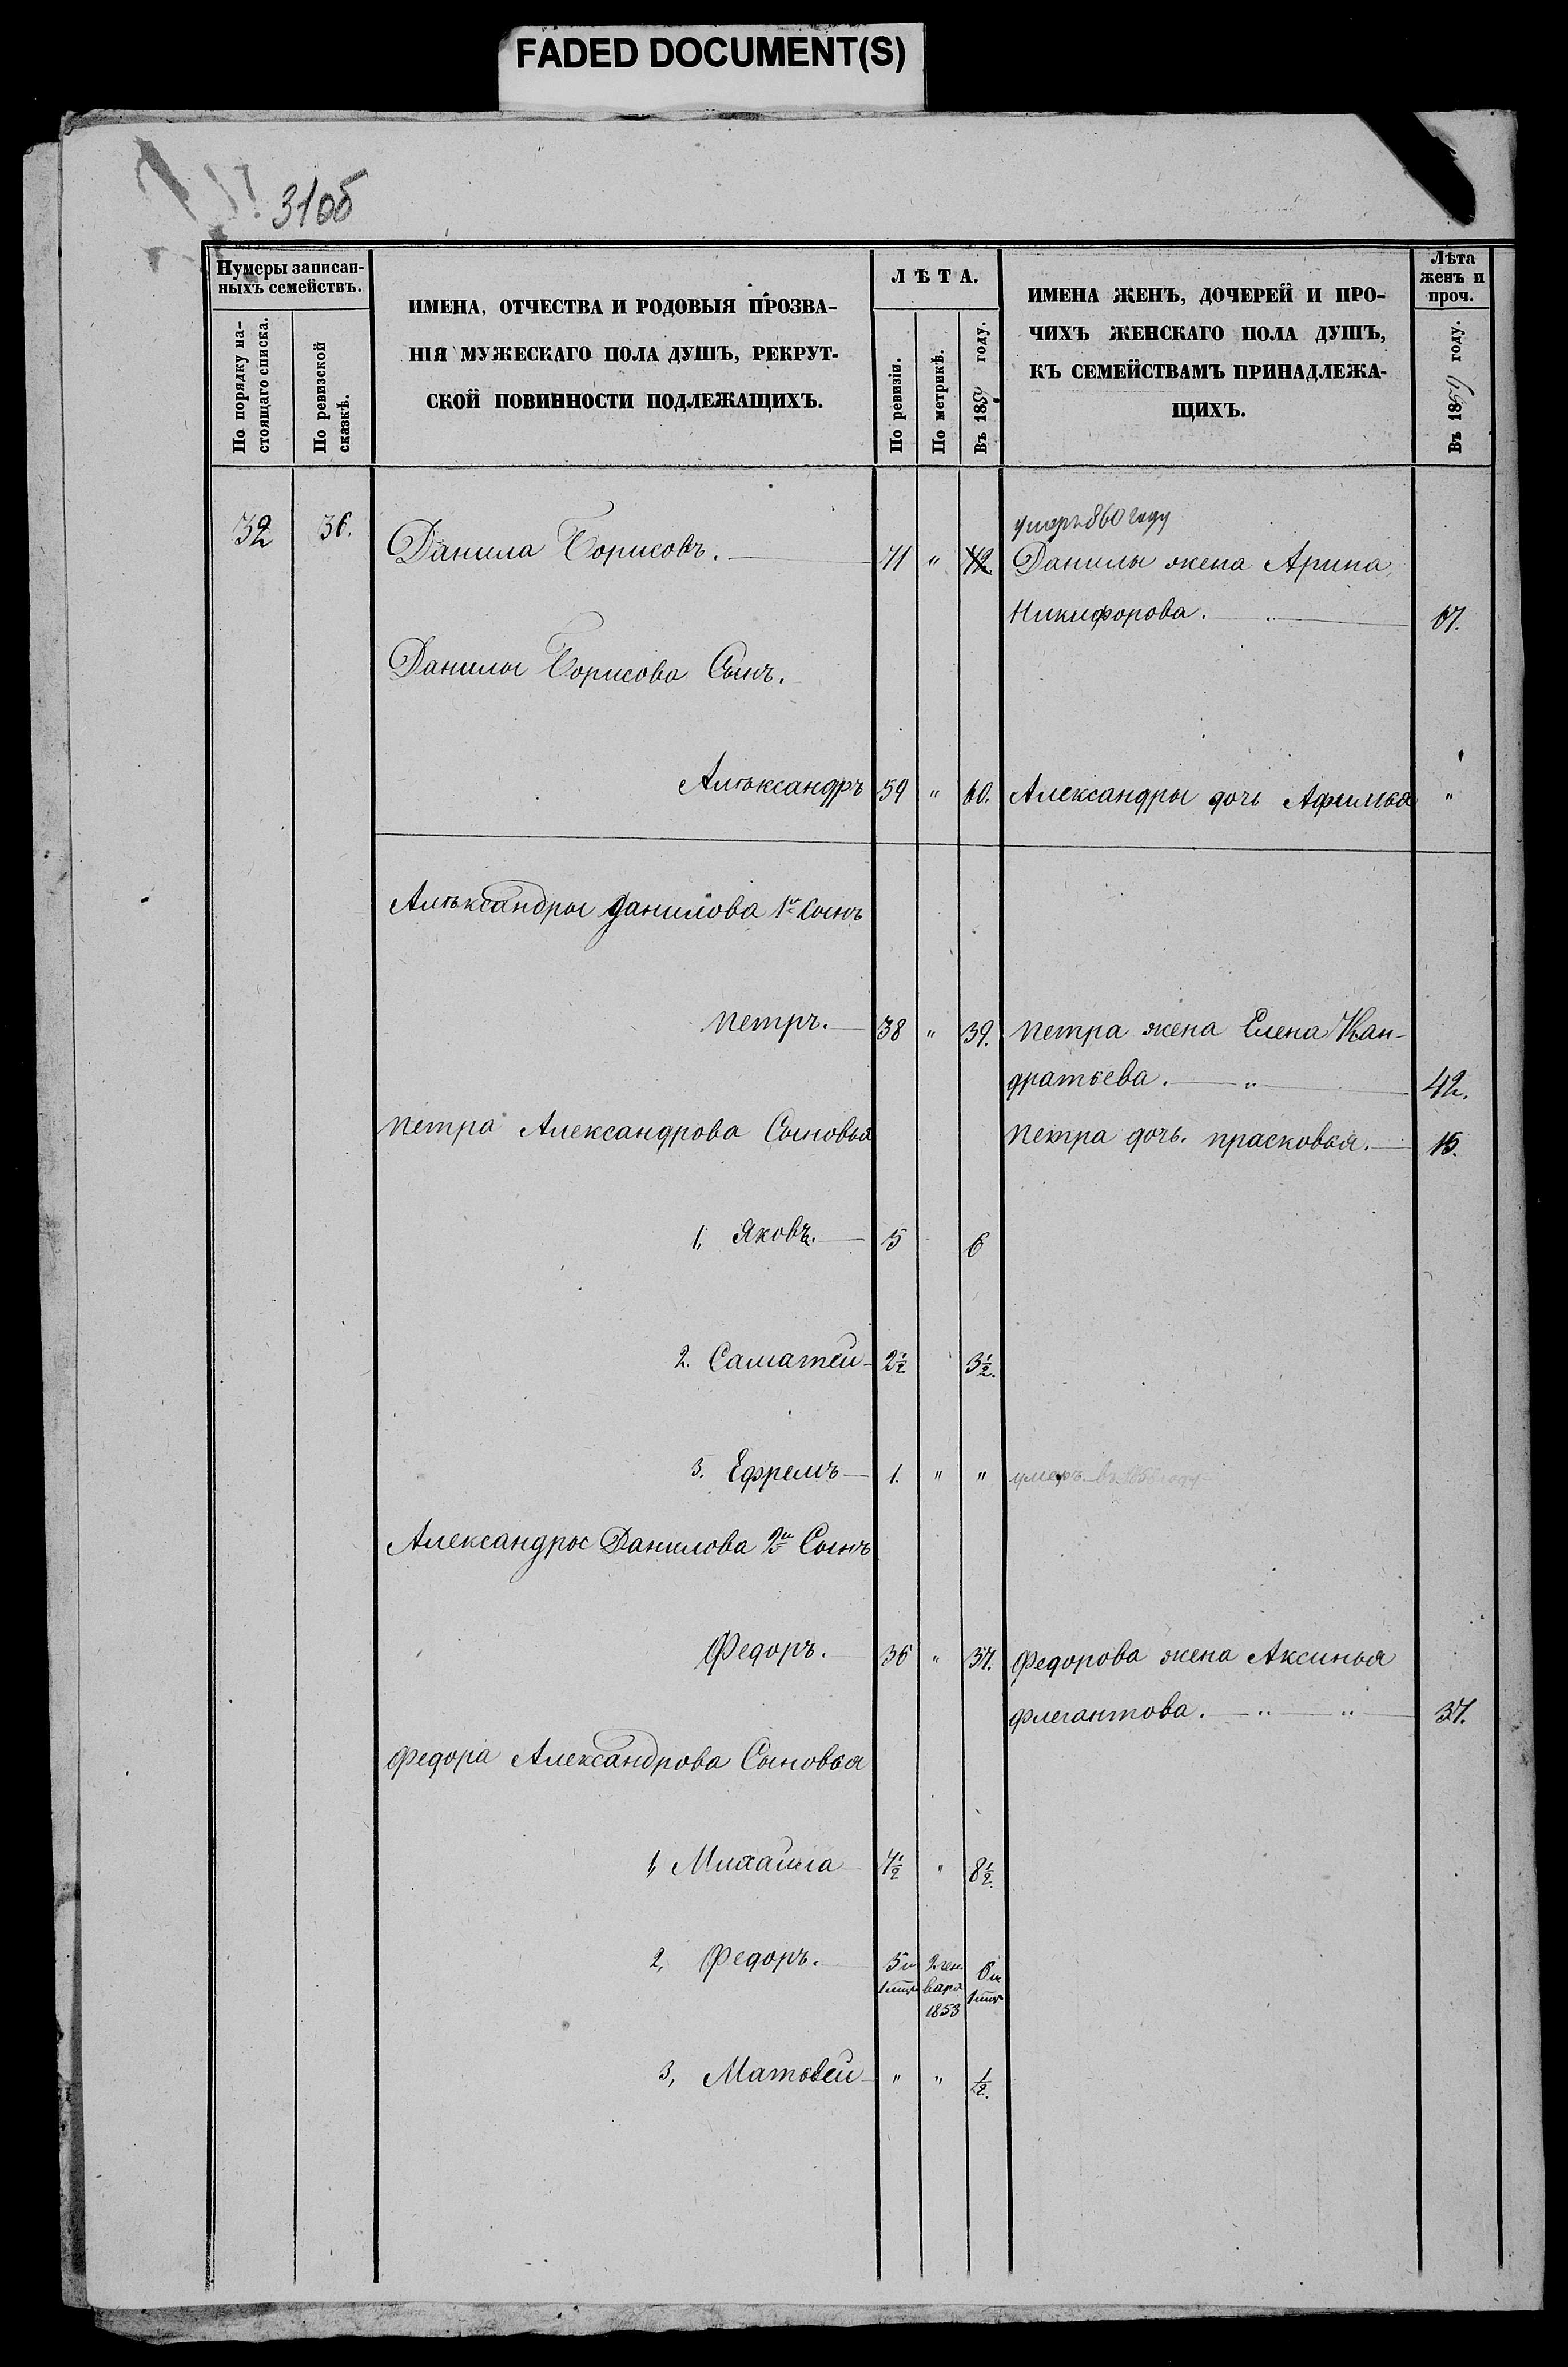 FADED DOCUMENT(S)
31об
Нумеры записан-
ныхъ семействъ.
По порядку на-
стоящаго списка.
По ревизской
сказкѣ.
ИМЕНА, ОТЧЕСТВА И РОДОВЫЯ ПРОЗВА-
НІЯ МУЖЕСКАГО ПОЛА ДУШЪ, РЕКРУТ-
СКОЙ ПОВИННОСТИ ПОДЛЕЖАЩИХЪ.
ЛѢТА.
По ревизіи.
По метрикѣ.
Въ 1859 году.
ИМЕНА ЖЕНЪ, ДОЧЕРЕЙ И ПРО-
ЧИХЪ ЖЕНСКАГО ПОЛА ДУШЪ,
КЪ СЕМЕЙСТВАМЪ ПРИНАДЛЕЖА-
ЩИХЪ.
Лѣта
женъ и
проч.
Въ 1859 году.
умеръ 860 году
32 36. Данила Борисовъ. 71 " 72. Данилы жена Арина
Никифорова. 67.
Данилы Борисова Сынъ.
Алѣксандръ 59 " 60. Александры дочь Афимья "
Алѣксандры Данилова 1й Сынъ
Петръ. 38 " 39. Петра жена Елена Кан-
дратьева. " 42.
Петра Александрова Сыновья Петра дочь. прасковья. 15.
1, Яковъ. 5 6
2. Саматей 2½ 3½.
3. Ефремъ 1. " " умеръ въ 1858 году
Александры Данилова 2й Сынъ
Федоръ. 36 " 37. Федорова жена Аксинья
Флегантова. " " 37.
Федора Александрова Сыновья
1, Михаила 7½ " 8½.
2, Федоръ. 5 и 2 ген 6 и
вара
1853
3, Матвей " " ½.